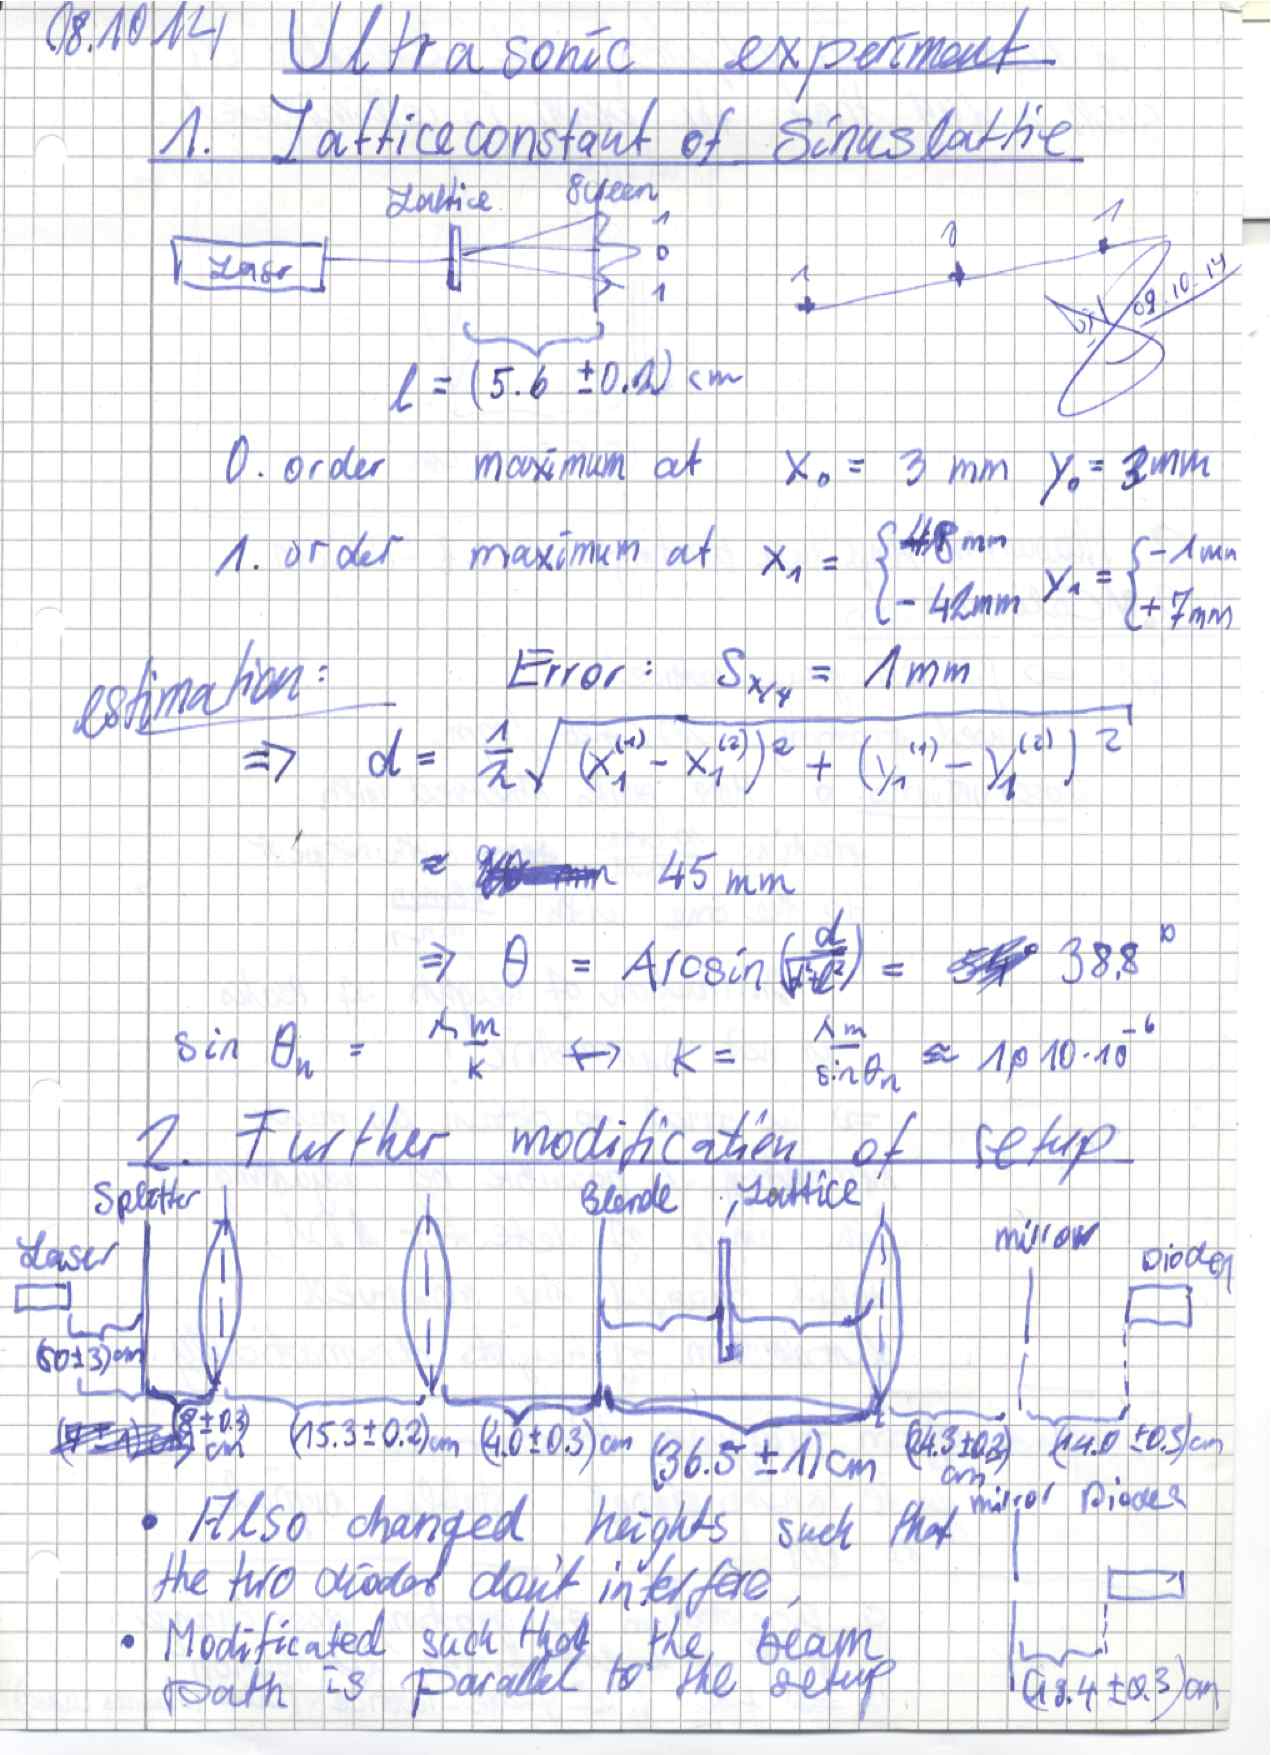 08.10.14
Ultrasonic experiment
1. Latticeconstant of Sinuslattie
Lattice Screen
Laser
1
0
1
1 0 1
09.10.14
l = (5.6 ±0.2) cm
0. order maximum at x₀ = 3 mm y₀ = 3mm
1. order maximum at x₁ = { 48mm y₁ = { -1mm
-42mm +7mm
estimation: Error: S_x/y = 1mm
⇒ d = 1/2 √((x₁⁽¹⁾ - x₁⁽²⁾)² + (y₁⁽¹⁾ - y₁⁽²⁾)²)
≈ 45 mm
⇒ θ = Arcsin(d/√(d²+l²)) = 38,8°
sin θₙ = λm/k ↔ k = λm/sinθₙ ≈ 1,010·10⁻⁶
2. Further modification of setup
Splitter Blende , Lattice
Laser mirror Diodes
(50±3)cm
(8±0.3) cm (15.3±0.2)cm (4.0±0.3)cm (36.5±1)cm (24.3±0.3) cm (14.0±0.5)cm
mirror Diodes
• Also changed heights such that
the two diodes don't interfere,
• Modificated such that the beam
path is parallel to the setup